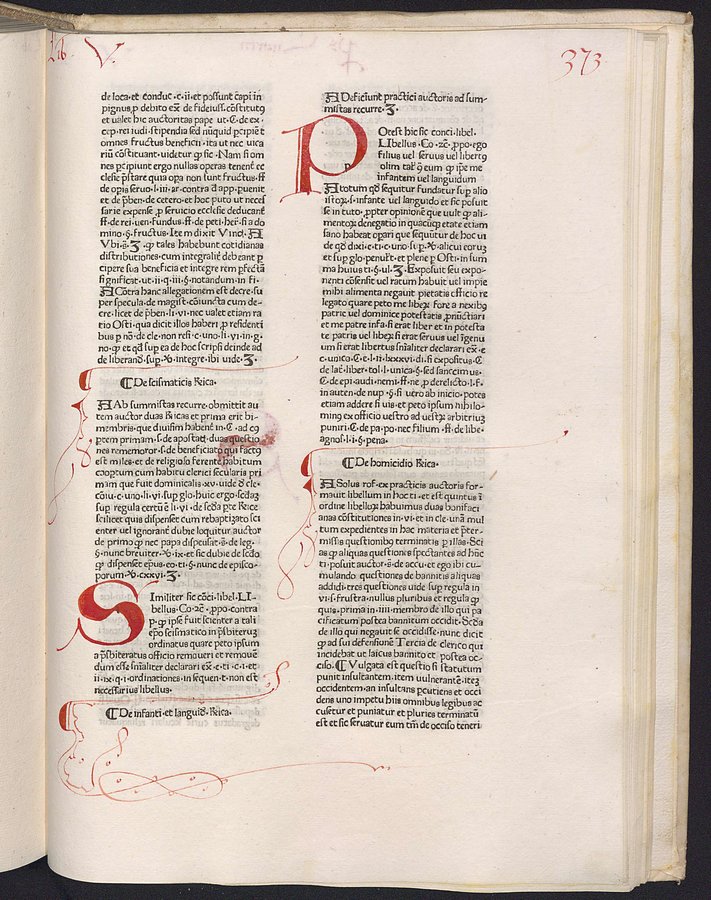 Lib V.
373
de loca·et conduc·c·ii·et possunt capi in
pignus ꝓ debito em̄ de fideiuss·cōstitutꝯ
et valet hic auctoritas pape ut·C·de ex
cep·rei iudi·stipendia sed nūquid ꝑcipiēt
omnes fructus benefici
riū cōstituant·videtur ꝙ sic·Nam si om
nes ꝑcipiunt ergo nullas operas tenent̄ ec
clesie p̄stare quia opa non sunt fructus·ff·
de opis seruo·l·iii·ar·contra d̄ app·puenit
et de p̄ben·de cetero·et hoc puto ut necef
sarie expense ꝓ seruicio ecclesie deducant̄
ff·de rei·ven·fundus·ff·de peti·her̄·si a do
mino·§·fructus·Item dixit Vinc̄·A
Vbi·ē·Ʒ·ꝙ tales habebunt cotidianas
distributiones·cum integralit̄ debeant ꝑ
cipere sua beneficia et integre rem ꝑfectā
significat·ut·ii·q·iii·§·notandum·in fi·
A Cōtra hanc allegationem est decre·su
per specula·de magist·cōiuncta cum de
cre·licet de p̄ben·li·vi·nec valet etiam ra
tio Osti·qua dicit illos haberi ꝓ residenti
bus
no·ꝙ et qd̄ sup ea de hoc scripsi deinde ad
de libertand̄·sup·℣·integre·ibi vide·Ʒ·
¶ De scismaticis Rica·
A Ab summistas recurre·obmittit au
tem auctor duas Ricas et prima erit bi
membris·que diuisim habent̄ in·C·ad ꝗ
ptem primam·s·de apostat̄·duas questio
nes rememoror·s·de beneficiatꝯ qui factꝯ
est miles·et de religioso ferente habitum
coopertum cum habitu clerici secularis pri
mam que fuit dominicalis·xv·vide d̄ cle·
cōiu·c·uno·li·vi·sup glo·huic ergo·scd̄az
sup regula certū ē·li·vi·de scd̄a pte Rice
scilicet quis dispenset cum rebaptizato sci
enter uel ignorant̄ dubie loquitur auctor
de primo ꝙ nec papa dispensat·d̄·de leg·
§·nunc breuiter·℣·ix·et sic dubie de scd̄o
ꝙ dispenset ep̄us·eo·ti·§·nunc de episco·
porum·℣·cxxvi·Ʒ·
S Imiliter sic cōci·libel·LI·
bellus·Co·zc̄·ꝓpo·contra
p·ꝙ ipse fuit scienter a tali
ep̄o scismatico in p̄sbiteruʒ
ordinatus quare peto ipsum
a p̄sbiteratus officio remoueri et remouē
dum esse snīaliter declarari exm̄·e·ti·c·i·et·
ii·ix·q·i·ordinationes·in sequent·non est
necessarius libellus·
¶ De infanti·et languid̄·Rica·
A Deficiunt practici auctoris ad sum-
mistas recurre·Ʒ·
P Otest hic sic conci·libel·
LIbellus·Co·zc̄·ꝓpo·ergo
filius uel seruus uel libertꝯ
olim tal'ꝯ eum ꝙ ipe me
infantem vel languidum
A totum qd̄ sequitur fundatur sup alio
istoꝝ·s·infante vel languido et sic posuit
se in tuto·ꝓpter opinionē que vult ꝙ ali-
mentoꝝ denegatio in quacūqꝫ etate etiam
sano habeat opari que sequūtur de hoc vi
de qd̄ dixi·c·ti·c·uno·sup·℣·alicui eoruʒ
et sup glo·penult·et plene p Osti·in sum
ma huius ti·§·ul·Ʒ·Exposuit seu expo-
nenti cōsensit vel ratum habuit vel impie
mihi alimenta negauit pietatis officio re
legato quare peto me libeꝝ fore a nexibꝯ
patrie vel dominice potestatis ꝓnūctiari
et me patre infa·si erat liber et in potesta
te patris vel libeꝝ si erat seruus uel īgenu
um si erat libertus snīaliter declarari ex̄·e·
c·unico·C·e·l·ii·lxxxvii·di·si expositus·C·
de lat̄·liber·tol·l·unica·§·sed sancimus·
C·de epi·audi·nemi·ff·ne ꝓ derelicto·l·f·
in auten·de nup·§·si vero ab inicio·potes
etiam addere si uis·et peto ipsum nihilo-
ming ex officio vestro ad uestꝝ arbitriuʒ
puniri·C·de pa·po·nec filium·ff·de libe·
agnos·l·i·§·pena·
¶ De homicidio Rica·
A Solus rof·ex practicis auctoris for-
mauit libellum in hoc ti·et est quintus ī
ordine libelloꝝ habuimus duas bonifaci
anas cōstitutiones·in·vi·et in cle·unā mul
tum expedientes in hac materia et p̄ter-
missis questionibꝯ terminatis ꝑ illas·Sci
as ꝙ aliquas questiones spectantes ad hūc
ti·posuit auctor·s·de accu·et ego ibi cu-
mulando questiones de bannitis aliquas
addidi·tres questiones vide sup regula in
vi·s·frustra·nullus pluribus et regula ꝙ
quis·prima·in·iiii·membro de illo qui pa
cificatum postea bannitum occidit·Scd̄a
de illo qui negauit se occidisse·nunc dicit
ꝙ ad sui defensionē Tercia de clerico qui
incidebat ut laicus bannito et postea oc-
ciso·¶ Vulgata est questio si statutum
punit insultantem·item vulnerantē·iteʒ
occidentem·an insultans ꝑcutiens et occi
dens uno impetu hiis omnibus legibus ac
cusetur et puniatur et pluries terminatū
est et sic seruatur eum tm̄ de occiso teneri